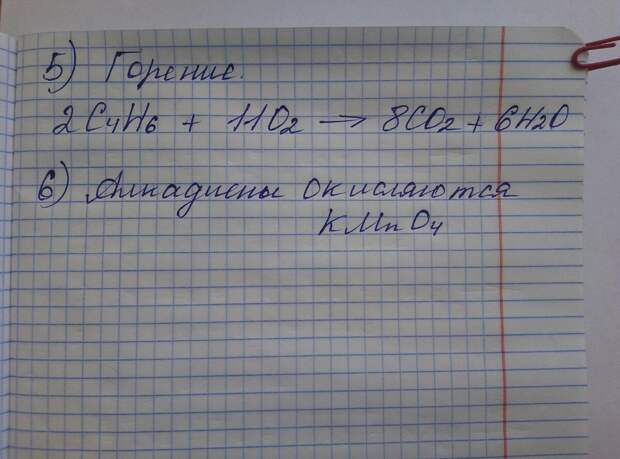 5) Горение.
2C4H6 + 11O2 → 8CO2 + 6H2O
6) Алкадиены окисляются
KMnO4